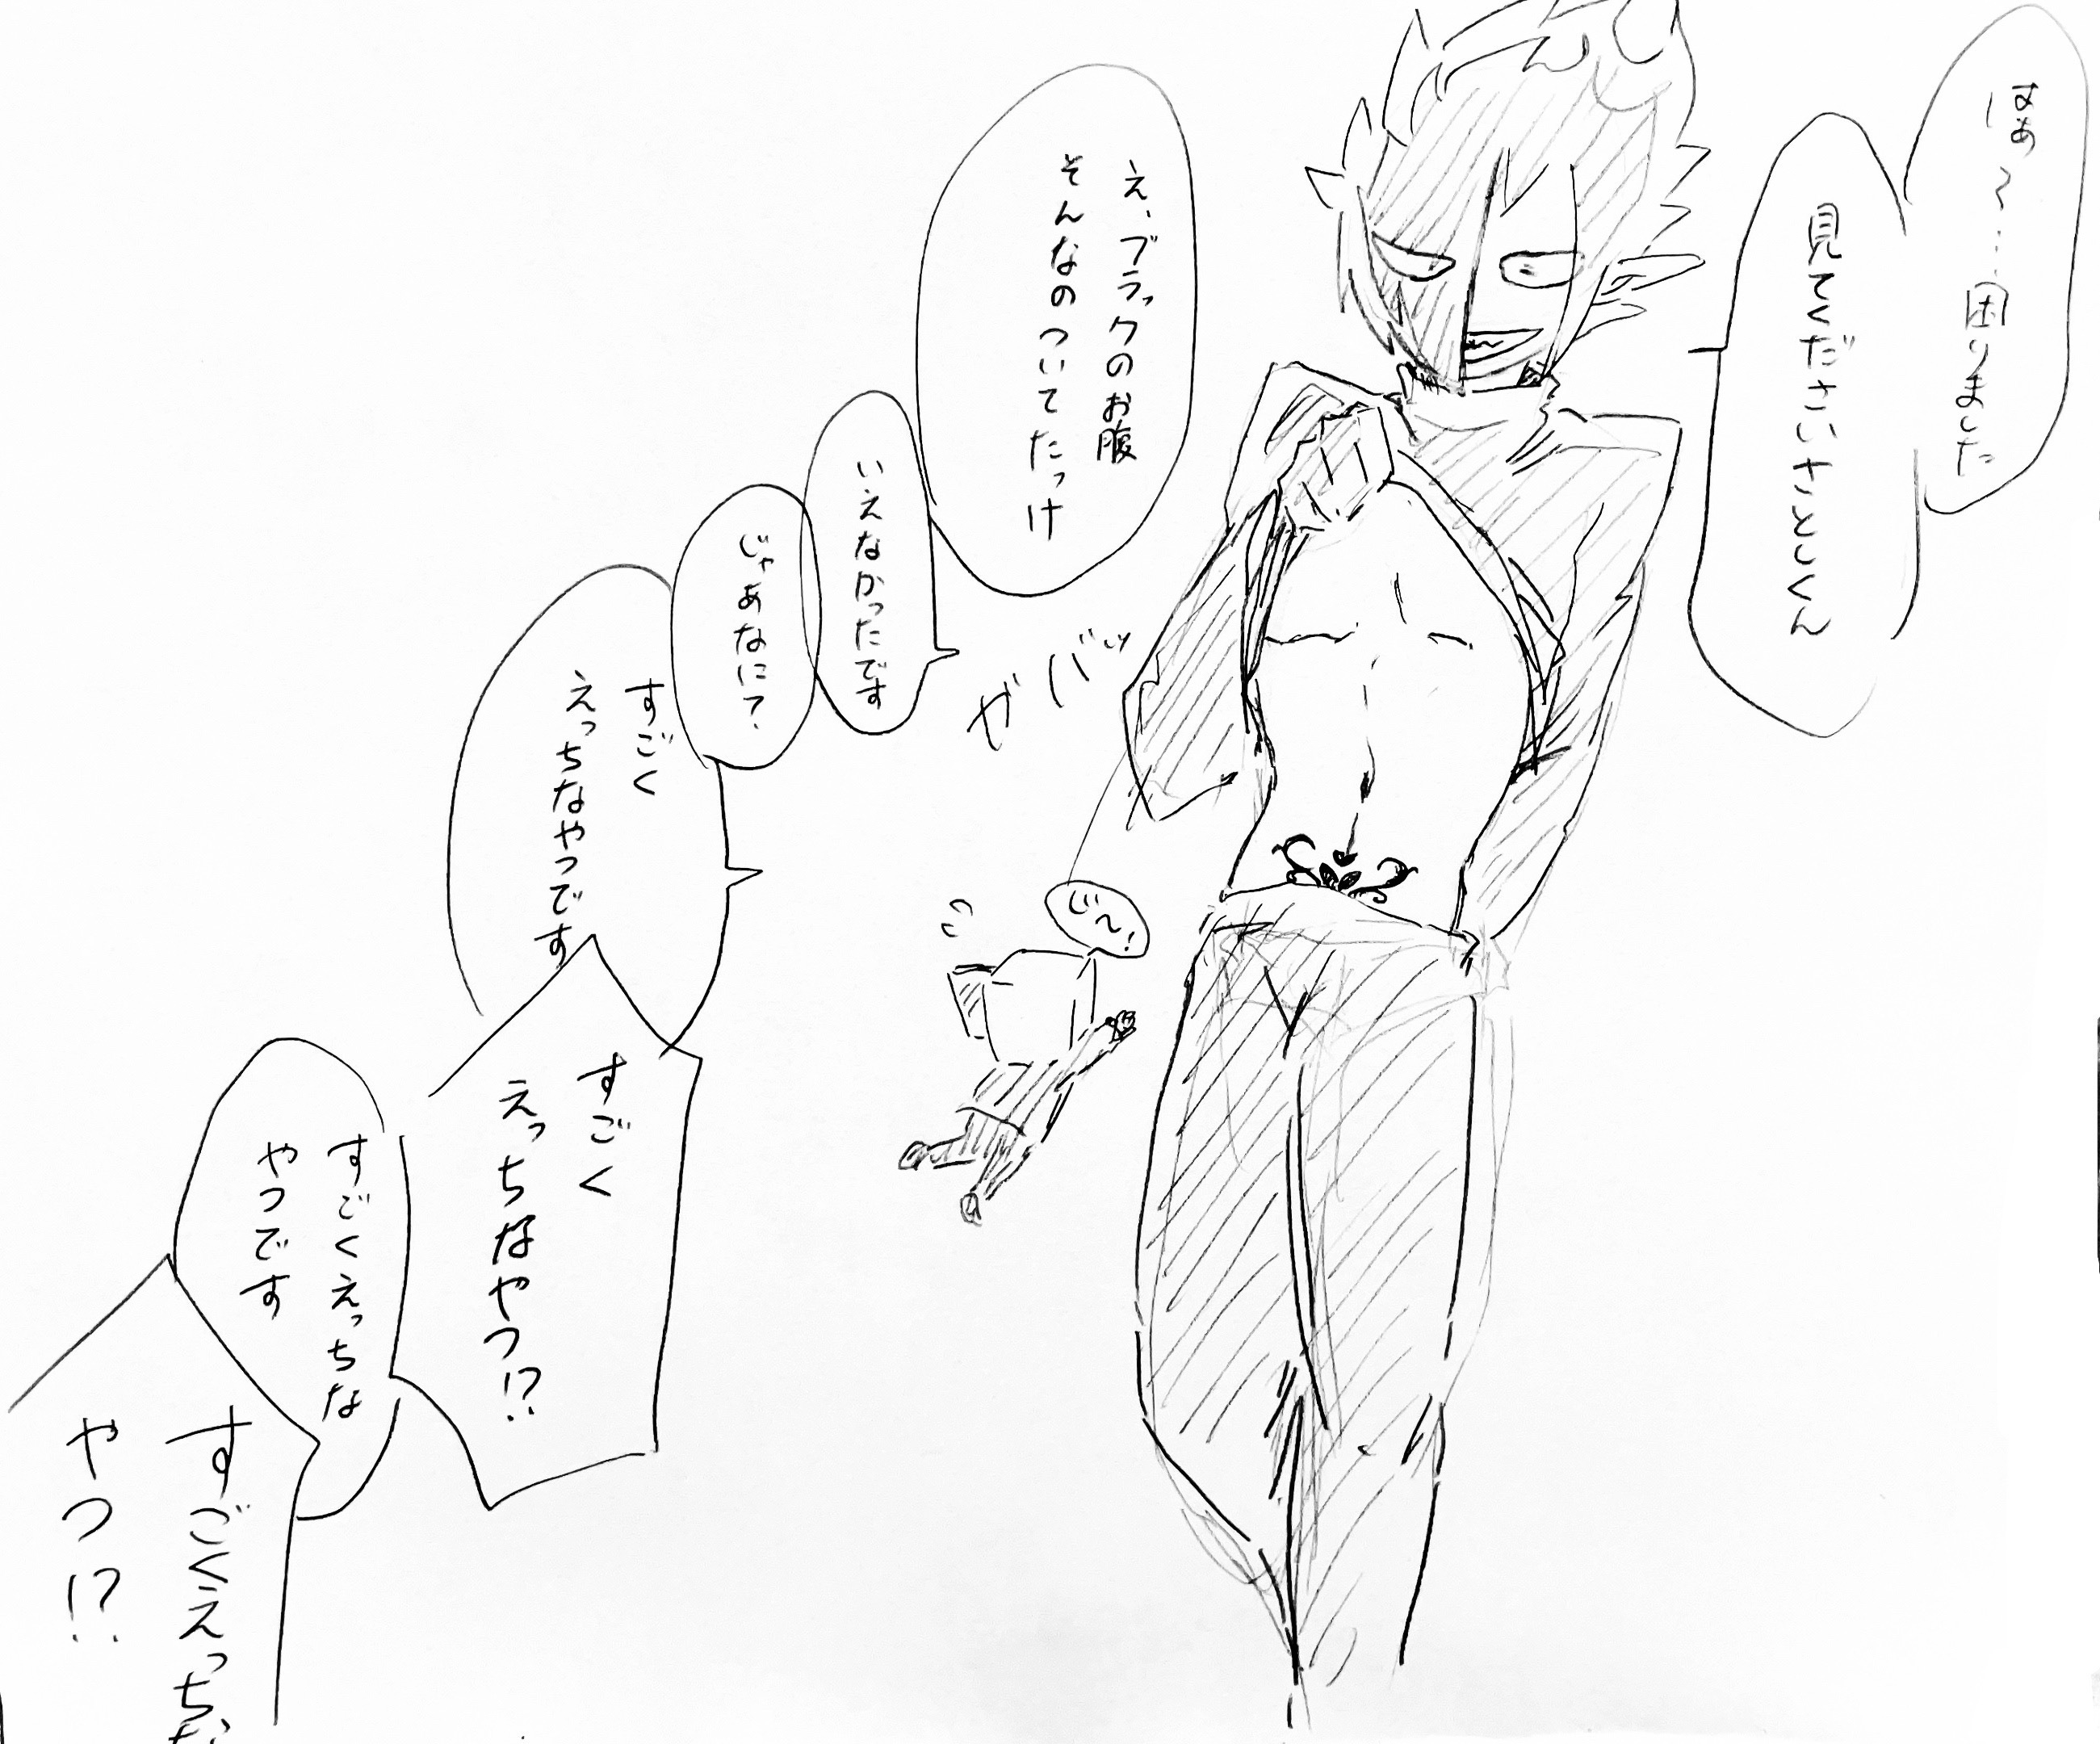 はぁ〜…困りました
見てくださいさとしくん
え、ブラックのお腹
そんなのついてたっけ
いえなかったです
じゃあなに?
すごく
えっちなやつです
すごく
えっちなやつ!?
すごくえっちな
やつです
すごくえっちな
やつ!?
ガバッ
じ〜!